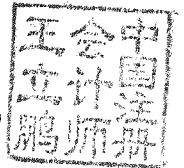 中国注册
会计师
王立鹏